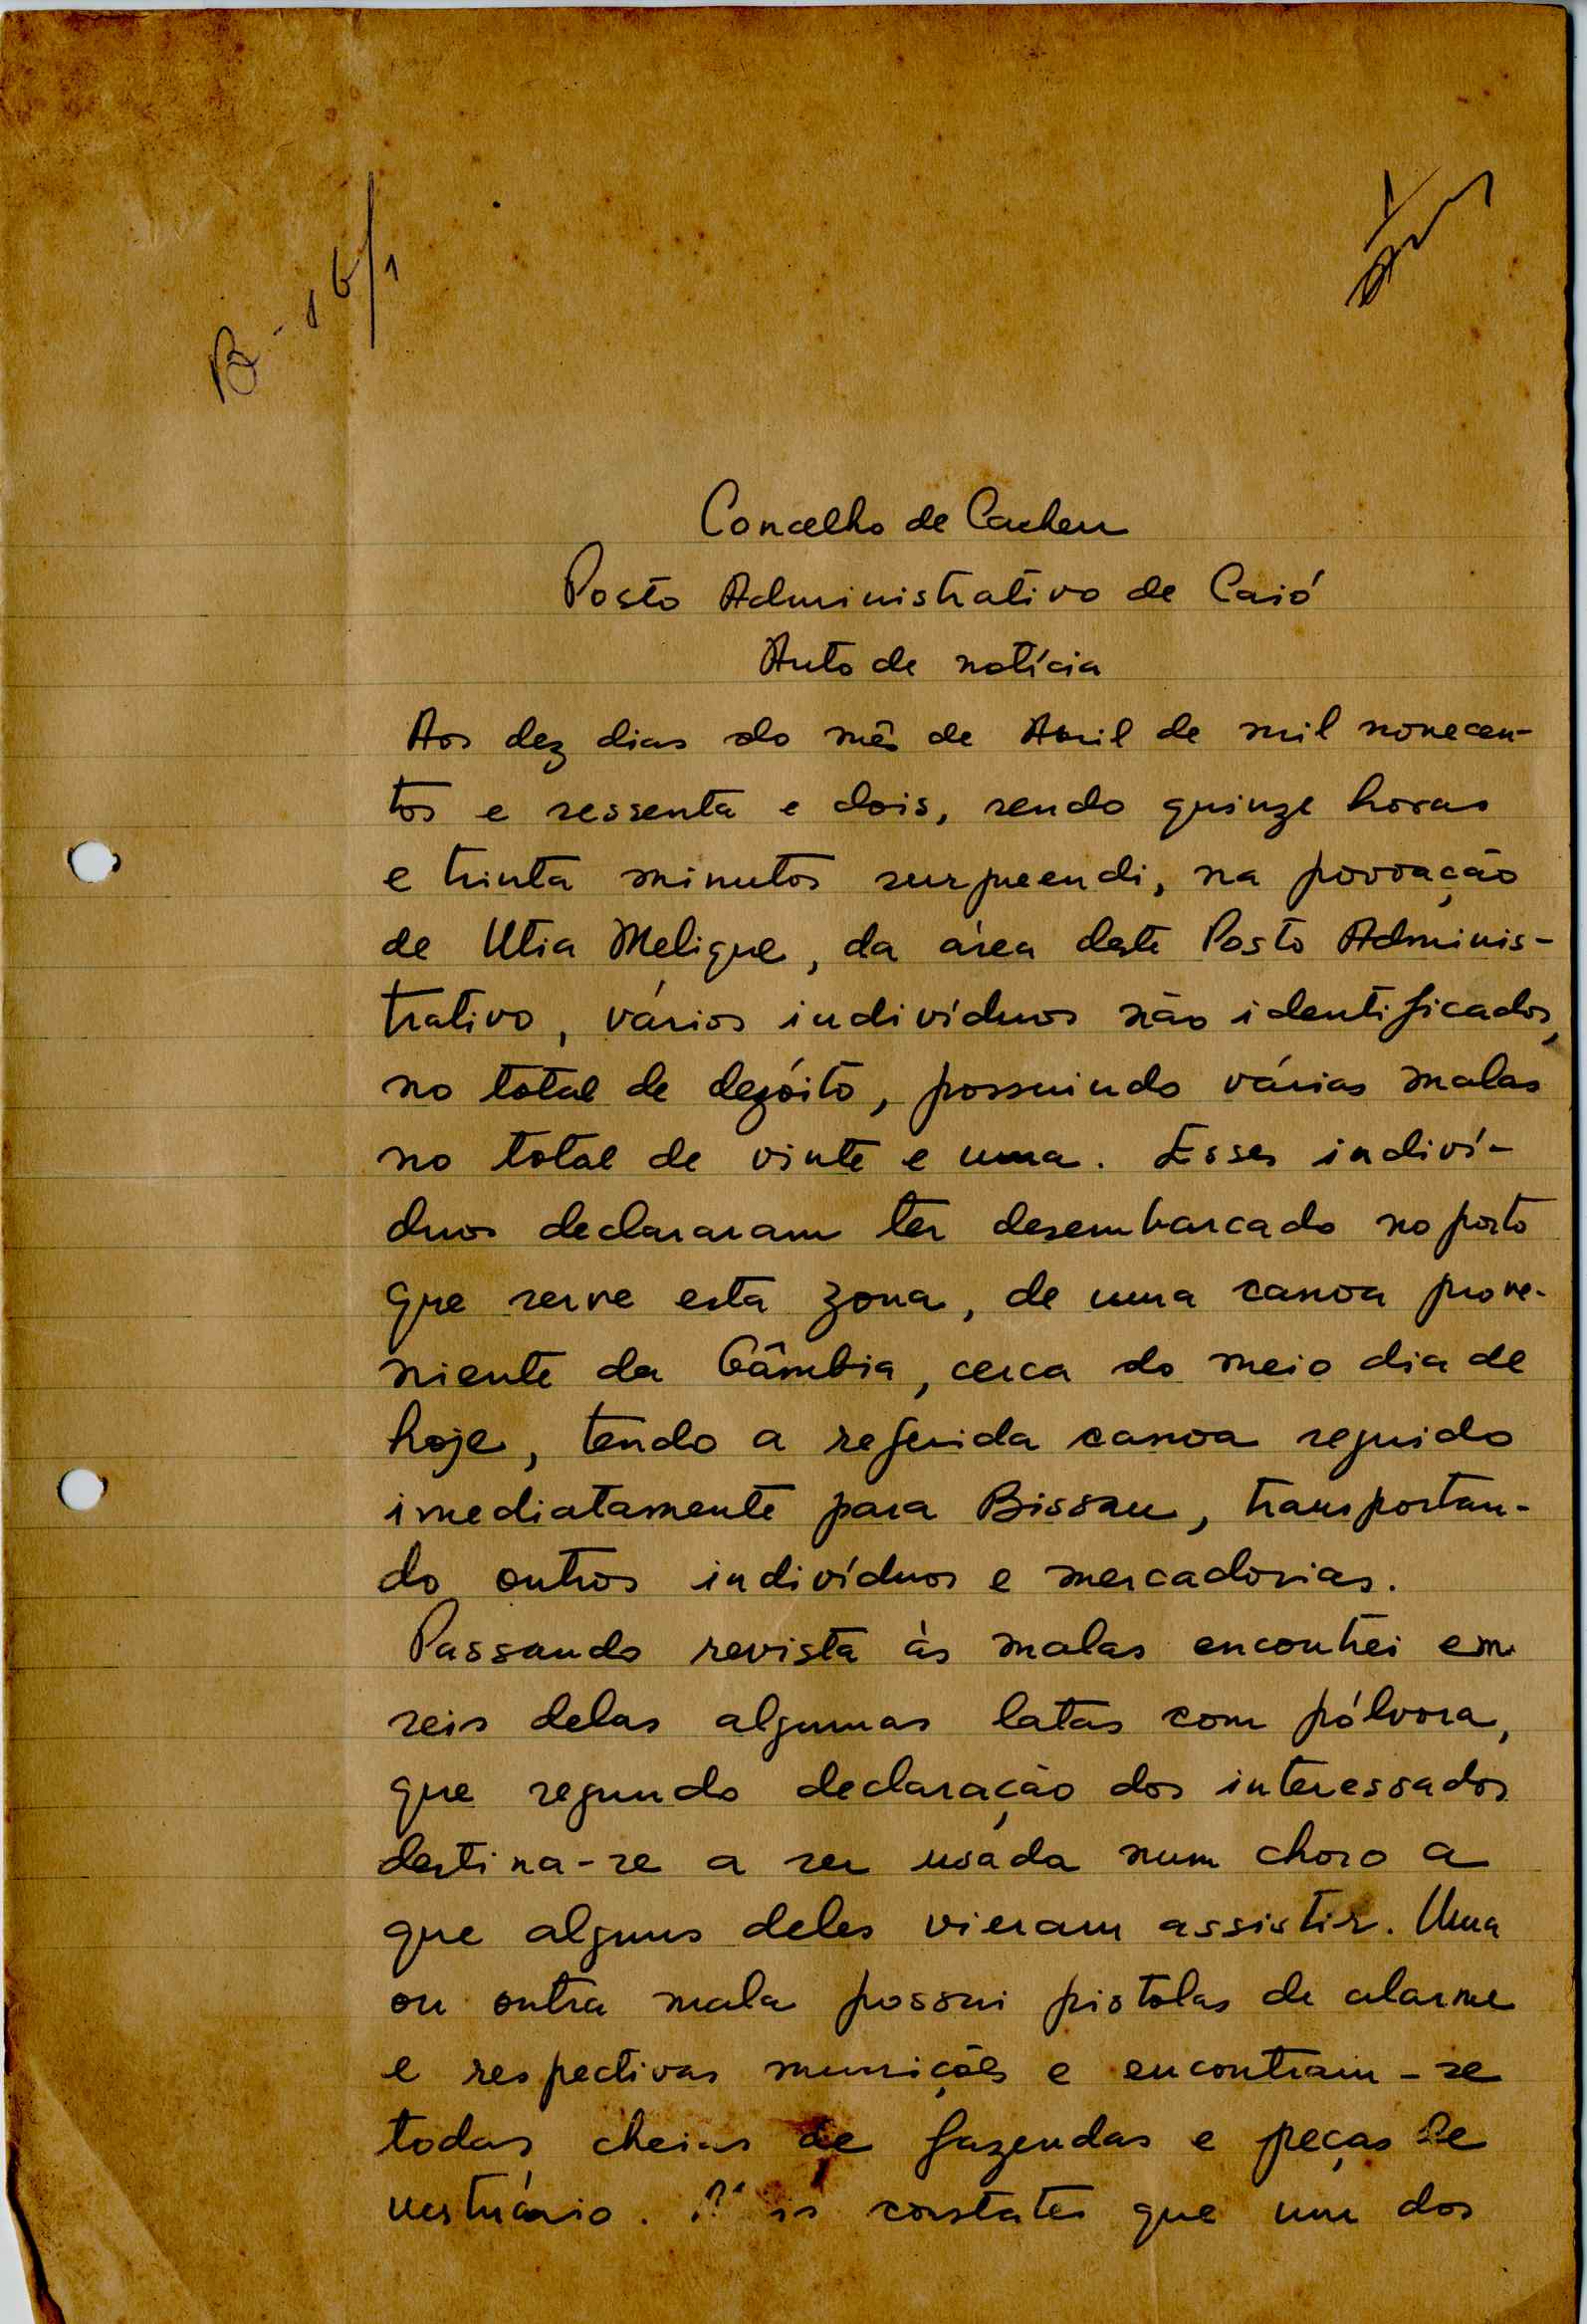 B-16/1
Concelho de Cacheu
Posto Administrativo de Caió
Auto de notícia
Aos dez dias do mês de Abril de mil novecen-
tos e sessenta e dois, sendo quinze horas
e trinta minutos surpreendi, na povoação
de Utia Melique, da área deste Posto Adminis-
trativo, vários indivíduos não identificados,
no total de dezóito, possuindo várias malas
no total de vinte e uma. Esses indiví-
duos declararam ter desembarcado no porto
que serve esta zona, de uma canoa prove-
niente da Gâmbia, cerca do meio dia de
hoje, tendo a referida canoa seguido
imediatamente para Bissau, transportan-
do outros indivíduos e mercadorias.
Passando revista às malas encontrei em
seis delas algumas latas com pólvora,
que segundo declaração dos interessados
destina-se a ser usada num choro a
que alguns deles vieram assistir. Uma
ou outra mala possui pistolas de alarme
e respectivas munições e encontram-se
todas cheias de fazendas e peças de
vestuário. constatei que um dos